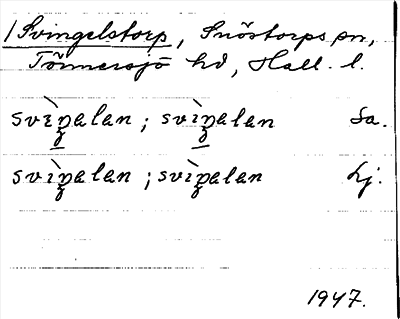 1 Svingelstorp, Snöstorps sn,
Tönnersjö hd, Hall. l.
svìŋalan ; svìŋalan Sa.
svìŋalan ; svìŋalan Lj.
1947.